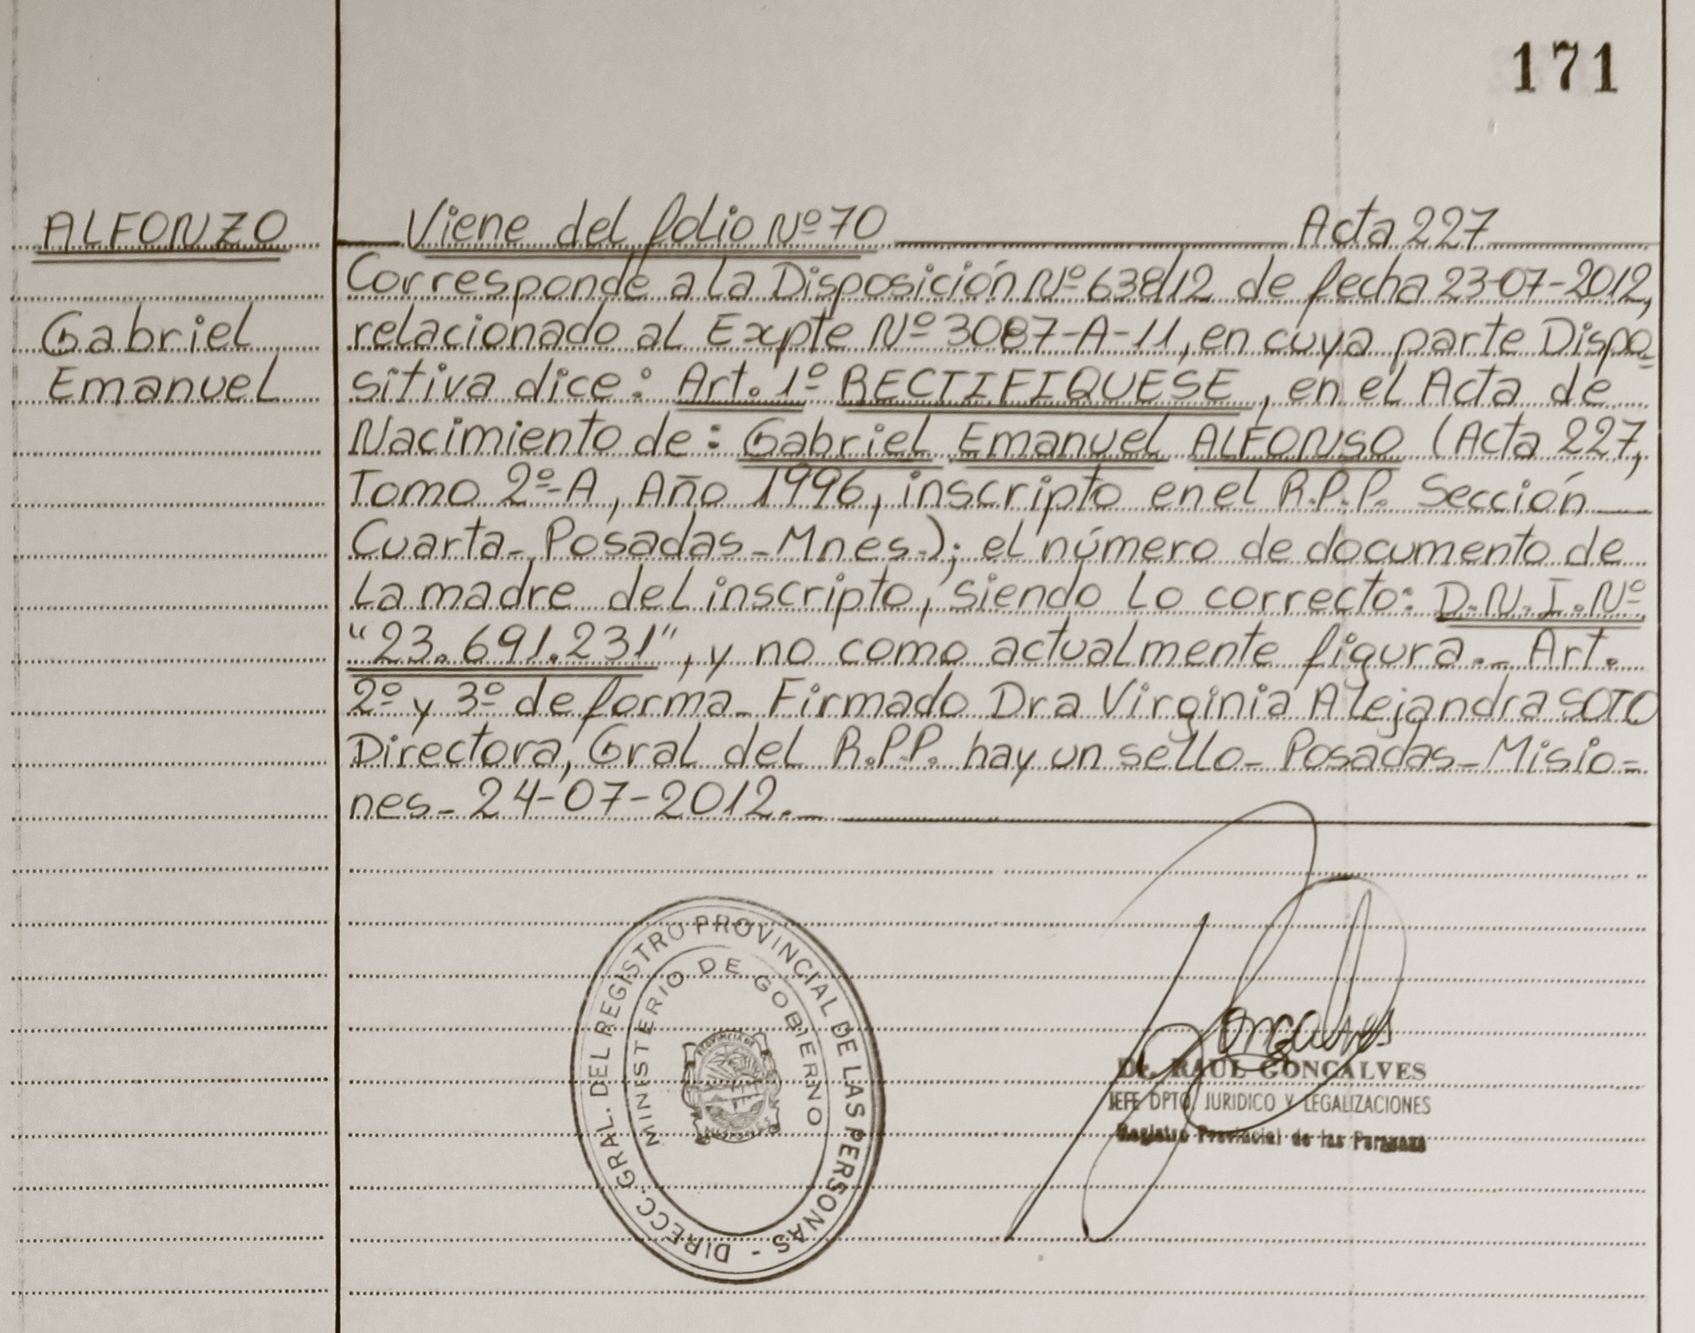 171
ALFONZO
Gabriel
Emanuel
Viene del folio Nº 70 Acta 227
Corresponde a la Disposición Nº 638/12 de fecha 23-07-2012,
relacionado al Expte Nº 3087-A-11, en cuya parte Dispo=
sitiva dice: Art. 1º RECTIFIQUESE, en el Acta de
Nacimiento de: Gabriel Emanuel ALFONSO (Acta 227,
Tomo 2º-A, Año 1996, inscripto en el R.P.P. Sección
Cuarta_ Posadas_Mnes.); el número de documento de
la madre del inscripto, siendo lo correcto: D.N.I. Nº
"23.691.231", y no como actualmente figura._ Art.
2º y 3º de forma_ Firmado Dra Virginia Alejandra SOTO
Directora, Gral del R.P.P. hay un sello_ Posadas_Misio=
nes_ 24-07-2012._
DIRECC. GRAL. DEL REGISTRO PROVINCIAL DE LAS PERSONAS -
MINISTERIO DE GOBIERNO
PROVINCIA DE
MISIONES
Goncalves
Dr. RAUL GONCALVES
JEFE DPTO. JURIDICO Y LEGALIZACIONES
Registro Provincial de las Personas